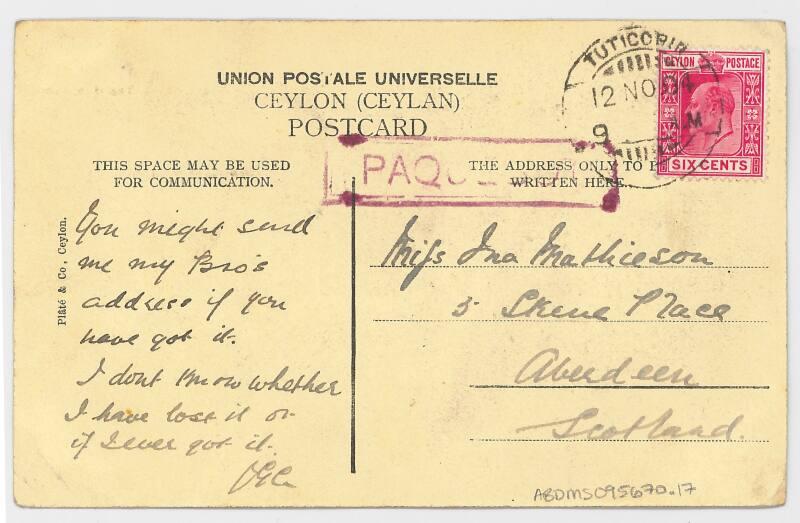 UNION POSTALE UNIVERSELLE
CEYLON (CEYLAN)
POSTCARD
TUTICORIN
12 NO 04
9 AM
CEYLON POSTAGE
SIX CENTS
THIS SPACE MAY BE USED
FOR COMMUNICATION.
THE ADDRESS ONLY TO BE
WRITTEN HERE.
Plâté & Co., Ceylon.
You might send
me my Bro's
address if you
have got it.
I dont know whether
I have lost it or
if I ever got it.
Miss Ina Mathieson
5 Skene Place
Aberdeen
Scotland.
ABDMS095670.17